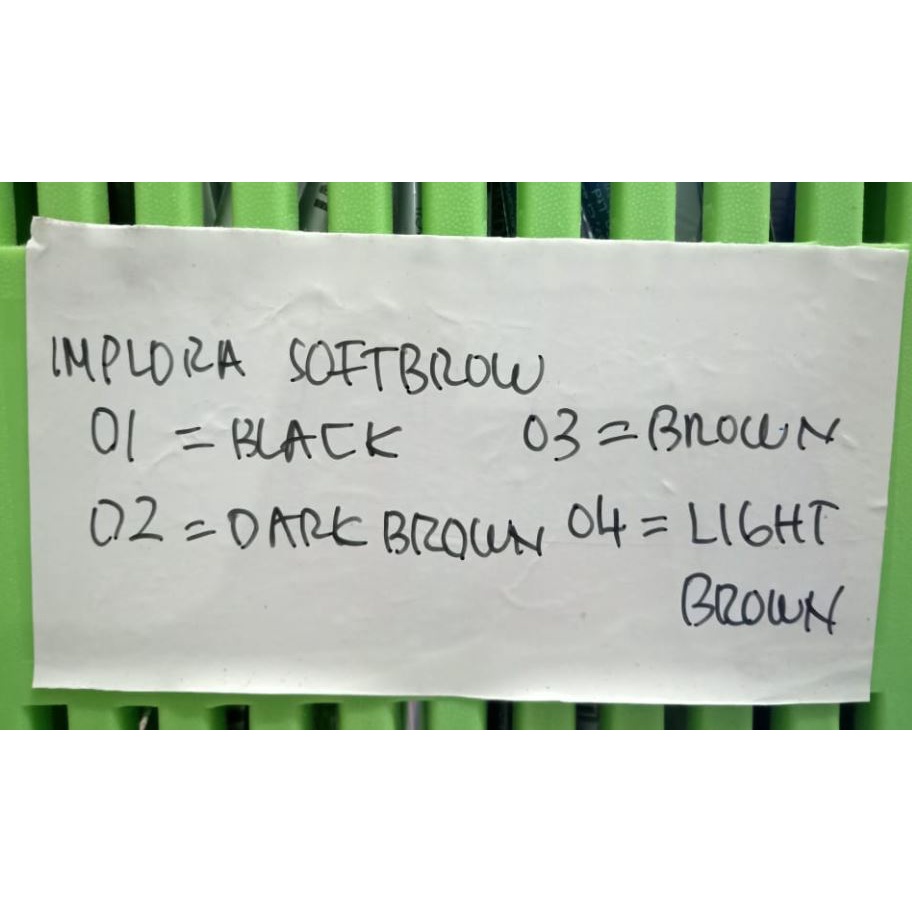 IMPLORA SOFTBROW
01 = BLACK 03 = BROWN
02 = DARK BROWN 04 = LIGHT
BROWN